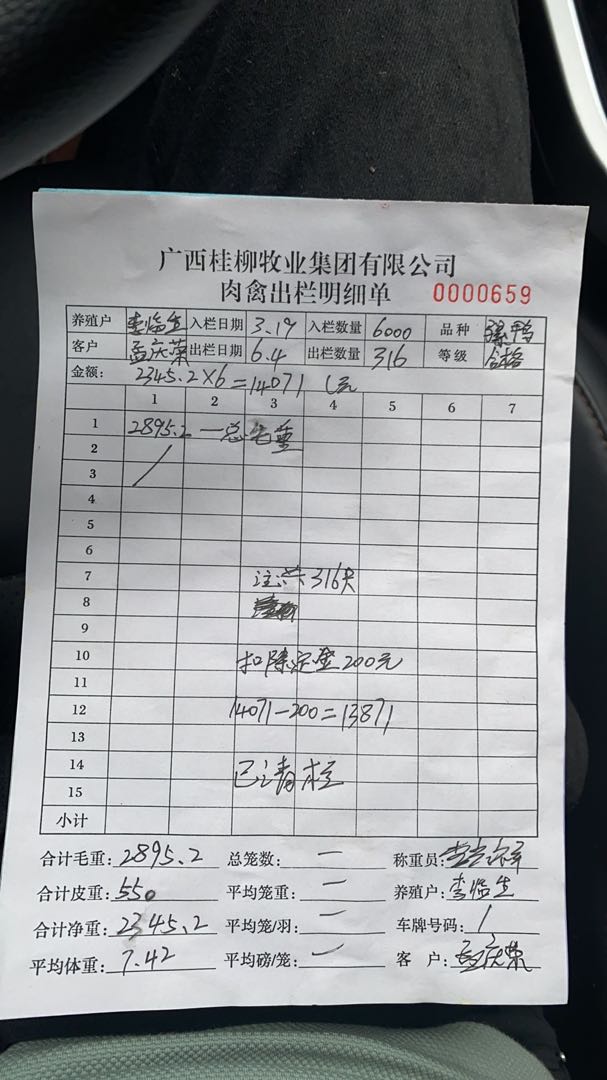 广西桂柳牧业集团有限公司
肉禽出栏明细单 0000659
养殖户 李临生 入栏日期 3.19 入栏数量 6000 品种 骡鸭
客户 孟庆荣 出栏日期 6.4 出栏数量 316 等级 合格
金额: 2345.2×6=14071(元
1 2 3 4 5 6 7
1 2895.2 一总毛重
2
3
4
5
6
7 注:共316只
8
9
10 扣除定金200元
11
12 14071-200=13871
13
14 已清栏
15
小计
合计毛重: 2895.2 总笼数: 一 称重员:
合计皮重: 550 平均笼重: 一 养殖户: 李临生
合计净重: 2345.2 平均笼/羽: 一 车牌号码: /
平均体重: 7.42 平均磅/笼: 一 客 户: 孟庆荣